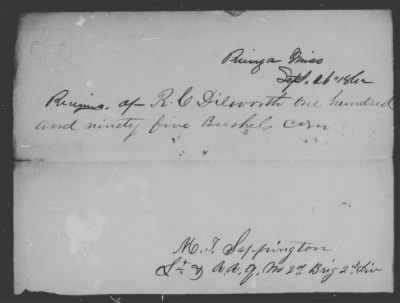 Rienza Miss
Sept. 26th 1862
Received of R. C. Dilworth one hundred
and ninety five Bushel, corn
M. T. Sappington
Lt & A. A. Q. M 2nd Brig 2d div